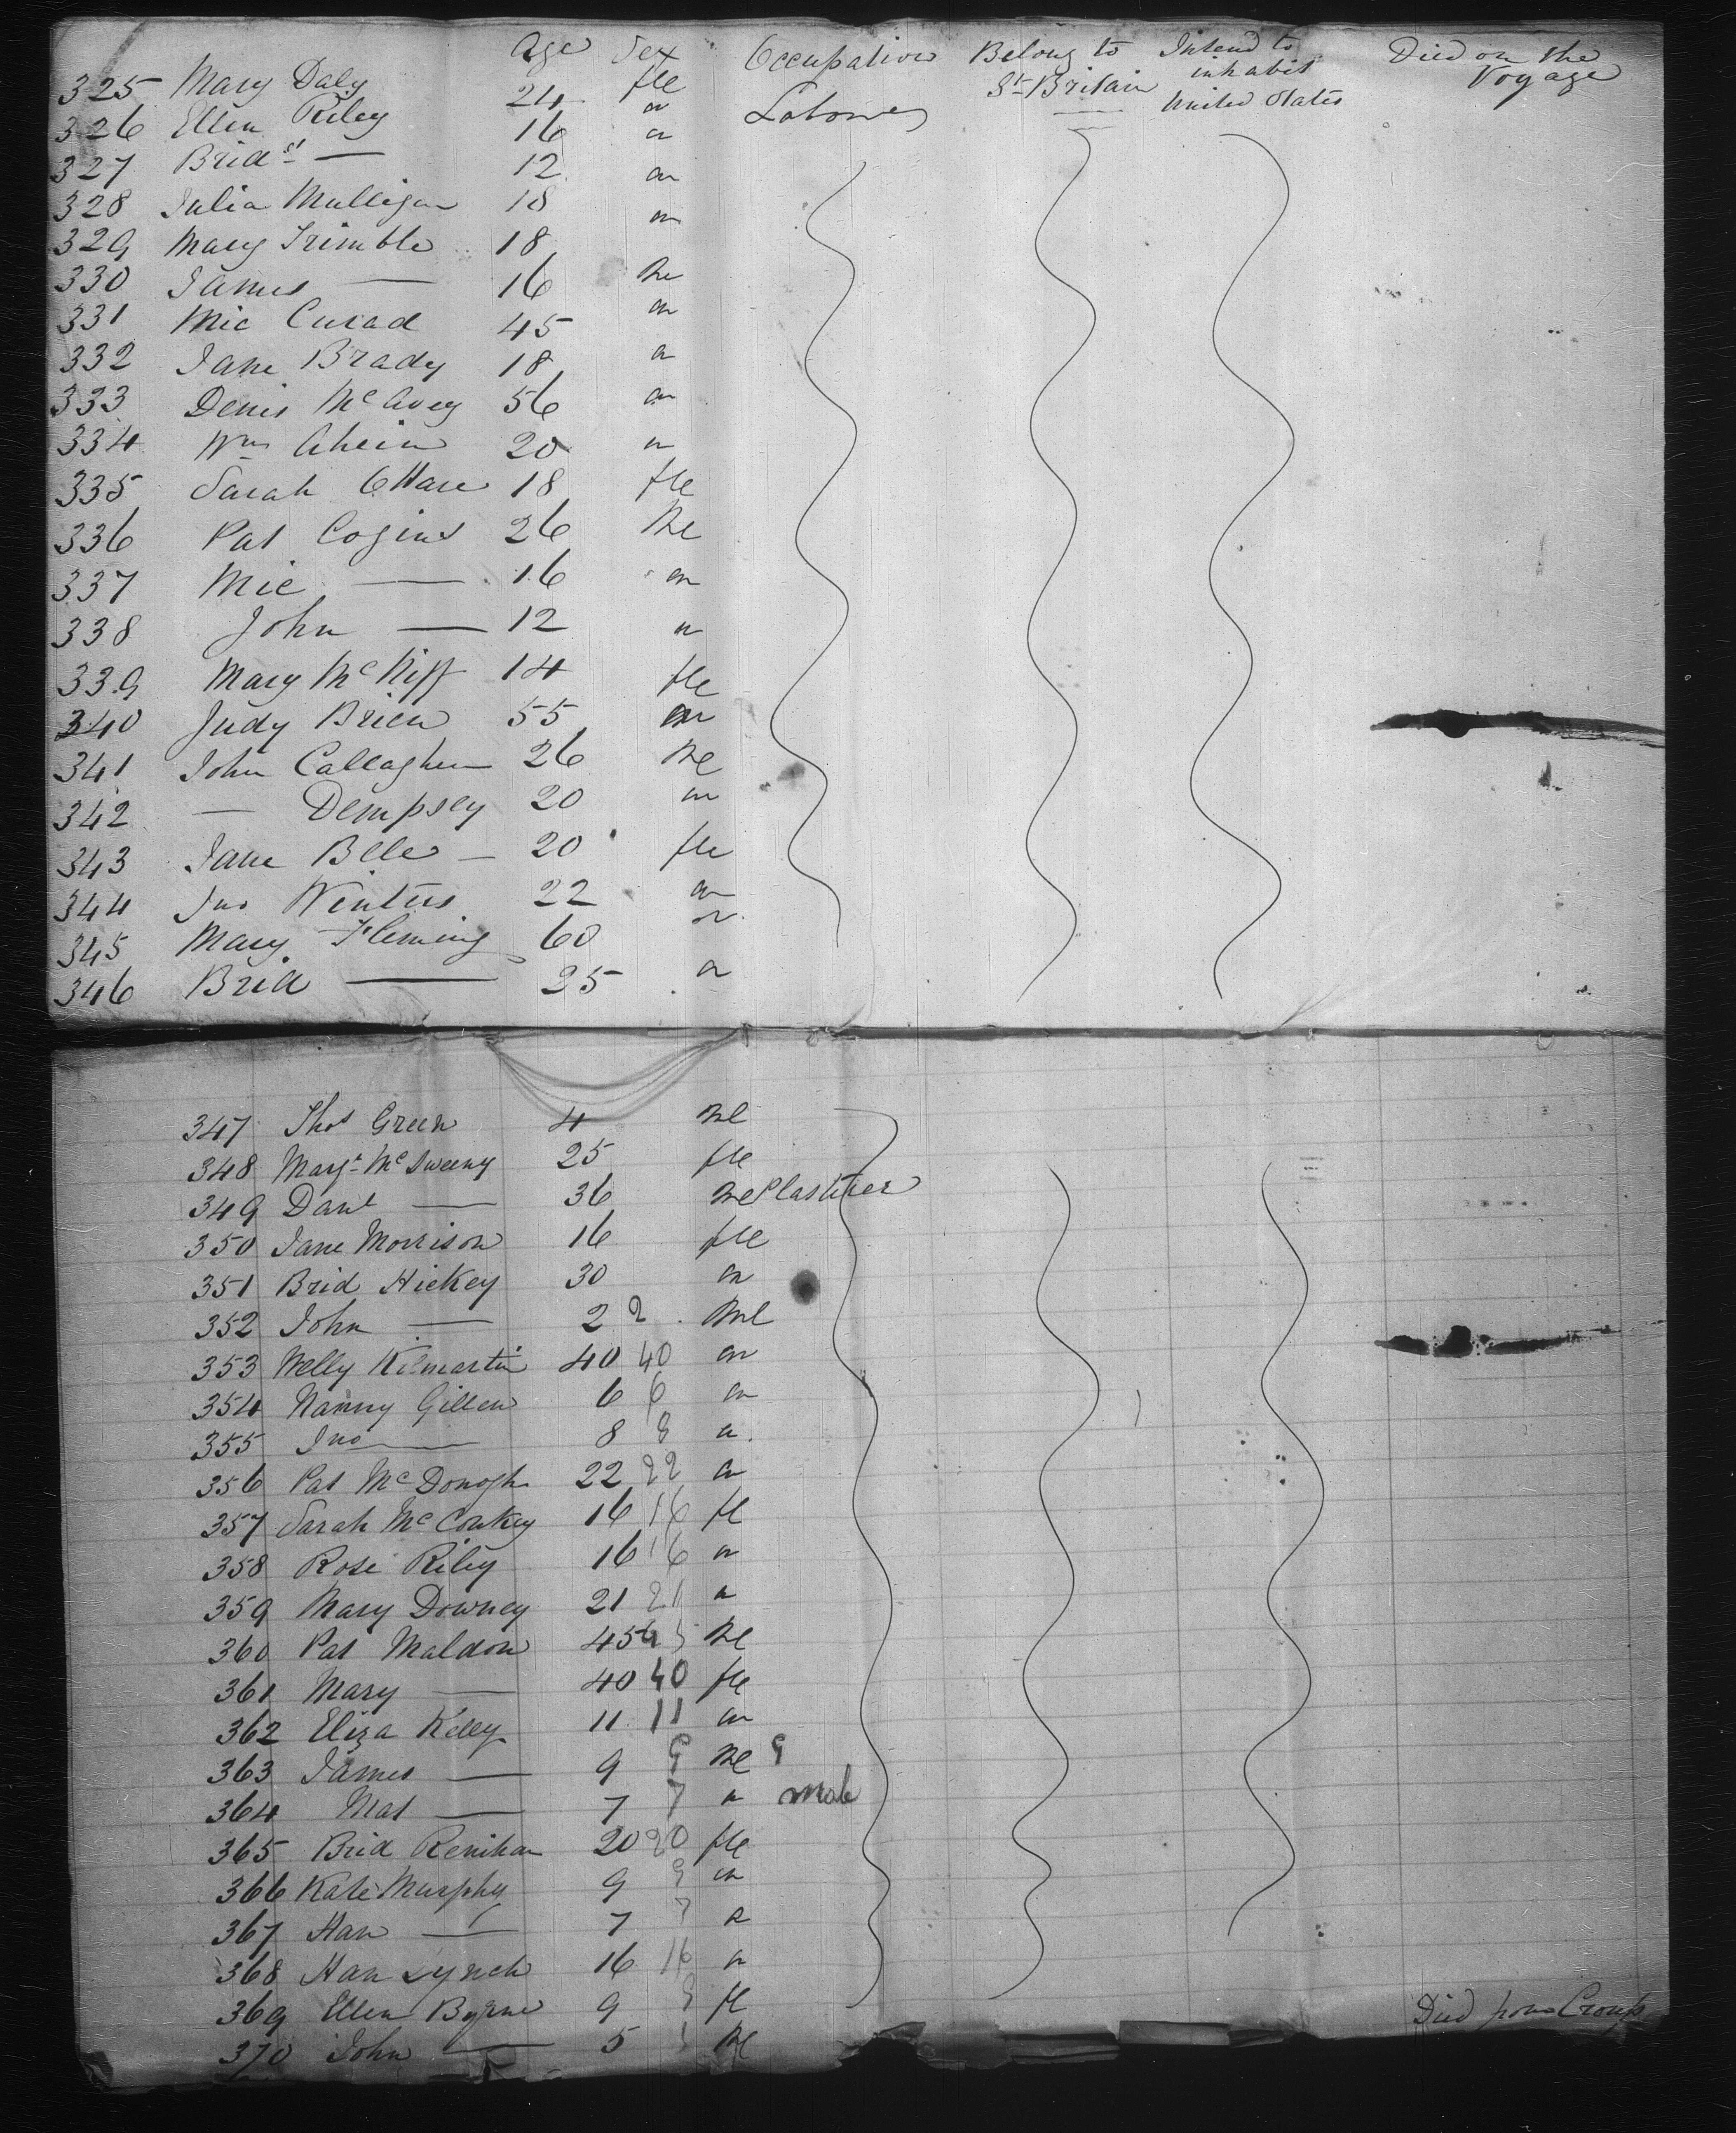 Age Sex Occupation Belong to Gt Britain Intend to inhabit United States Died on the Voyage
325 Mary Daly 24 fle Labourer
326 Ellen Riley 16 "
327 Bridgt — 12 "
328 Julia Mulligan 18 "
329 Mary Trimble 18 "
330 James — 16 Me
331 Mic Cusad 45 "
332 Jane Brady 18 "
333 Denis McAvey 56 "
334 Wm Ahein 20 "
335 Sarah OHare 18 fle
336 Pat Cogins 26 Me
337 Mic — 16 "
338 John — 12 "
339 Mary McNiff 14 fle
340 Judy Brien 55 "
341 John Callaghen 26 Me
342 — Dempsey 20 "
343 Jane Belle — 20 fle
344 Jno Winters 22 "
345 Mary Fleming 60 "
346 Brid — 25 "
347 Thos Green 4 Me
348 Margt McSweeny 25 fle
349 Danl — 36 Me Plasterer
350 Jane Morrison 16 fle
351 Brid Hickey 30 "
352 John — 2 2 Me
353 Nelly Kilmartin 40 40 "
354 Nanny Gillen 6 6 "
355 Jno — 8 8 "
356 Pat McDonogh 22 22 "
357 Sarah McConkey 16 16 fle
358 Rose Riley 16 16 "
359 Mary Downey 21 21 "
360 Pat Maldon 45 45 Me
361 Mary — 40 40 fle
362 Eliza Kelly 11 11 "
363 James — 9 9 Me 9
364 Mat — 7 7 " male
365 Brid Renihan 20 20 fle
366 Kate Murphy 9 9 "
367 Han — 7 7 "
368 Han Lynch 16 16 "
369 Ellen Byrne 9 9 fle Died from Croup
370 John — 5 Me